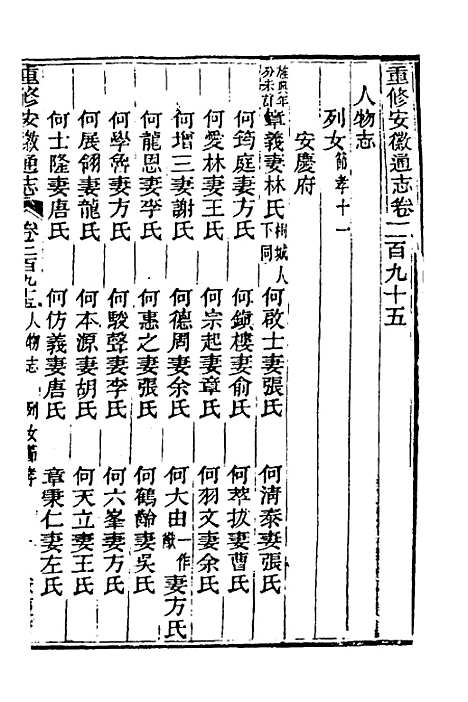 重修安徽通志卷二百九十五
人物志
列女節孝十一
安慶府
旌與年分未詳章義妻林氏桐城人下同 何啟士妻張氏 何清泰妻張氏
何筠庭妻方氏 何鎖樓妻俞氏 何萃拔妻曹氏
何愛林妻王氏 何宗起妻章氏 何羽文妻余氏
何增三妻謝氏 何德周妻余氏 何大由一作猷妻方氏
何龍恩妻李氏 何惠之妻張氏 何鶴齡妻吳氏
何學詹妻方氏 何駿聲妻李氏 何六峯妻方氏
何展翎妻龍氏 何本源妻胡氏 何天立妻王氏
何士隆妻唐氏 何仿義妻唐氏 章秉仁妻左氏
重修安徽通志 卷二百九十五 人物志 列女節孝